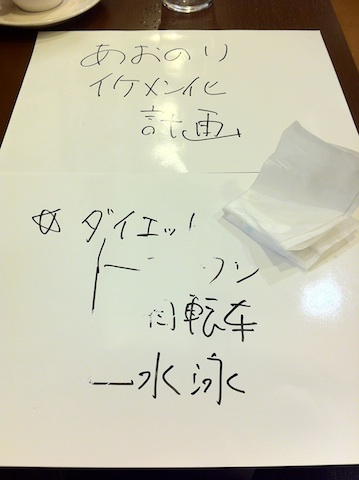 あおのり
イケメン化
計画
☆ ダイエッ
自転車
水泳